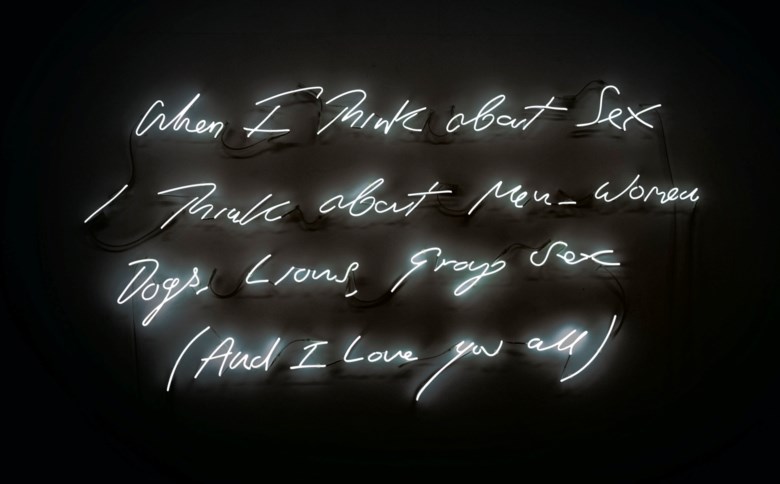 When I Think about Sex
I Think about Men_Women
Dogs, Lions, Group Sex
(And I Love you all)